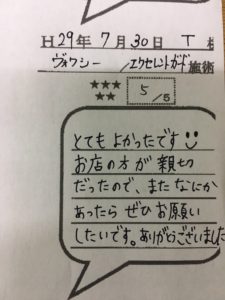 H29年7月30日 T 様
ヴォクシー / エクセレントガード施術
★★★
★★
5/5
とてもよかったです
お店の方が親切
だったので、またなにか
あったらぜひお願い
したいです。ありがとうございました